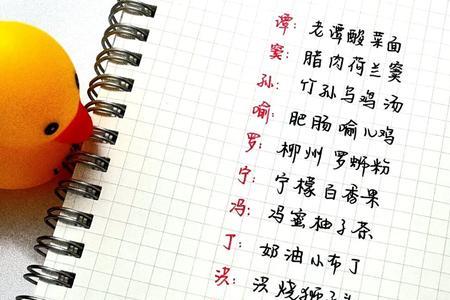 谭：老谭酸菜面
窦：腊肉荷兰窦
孙：竹孙乌鸡汤
喻：肥肠喻儿鸡
罗：柳州罗蛳粉
宁：宁檬百香果
冯：冯蜜柚子茶
丁：奶油小布丁
洪：洪烧狮子头